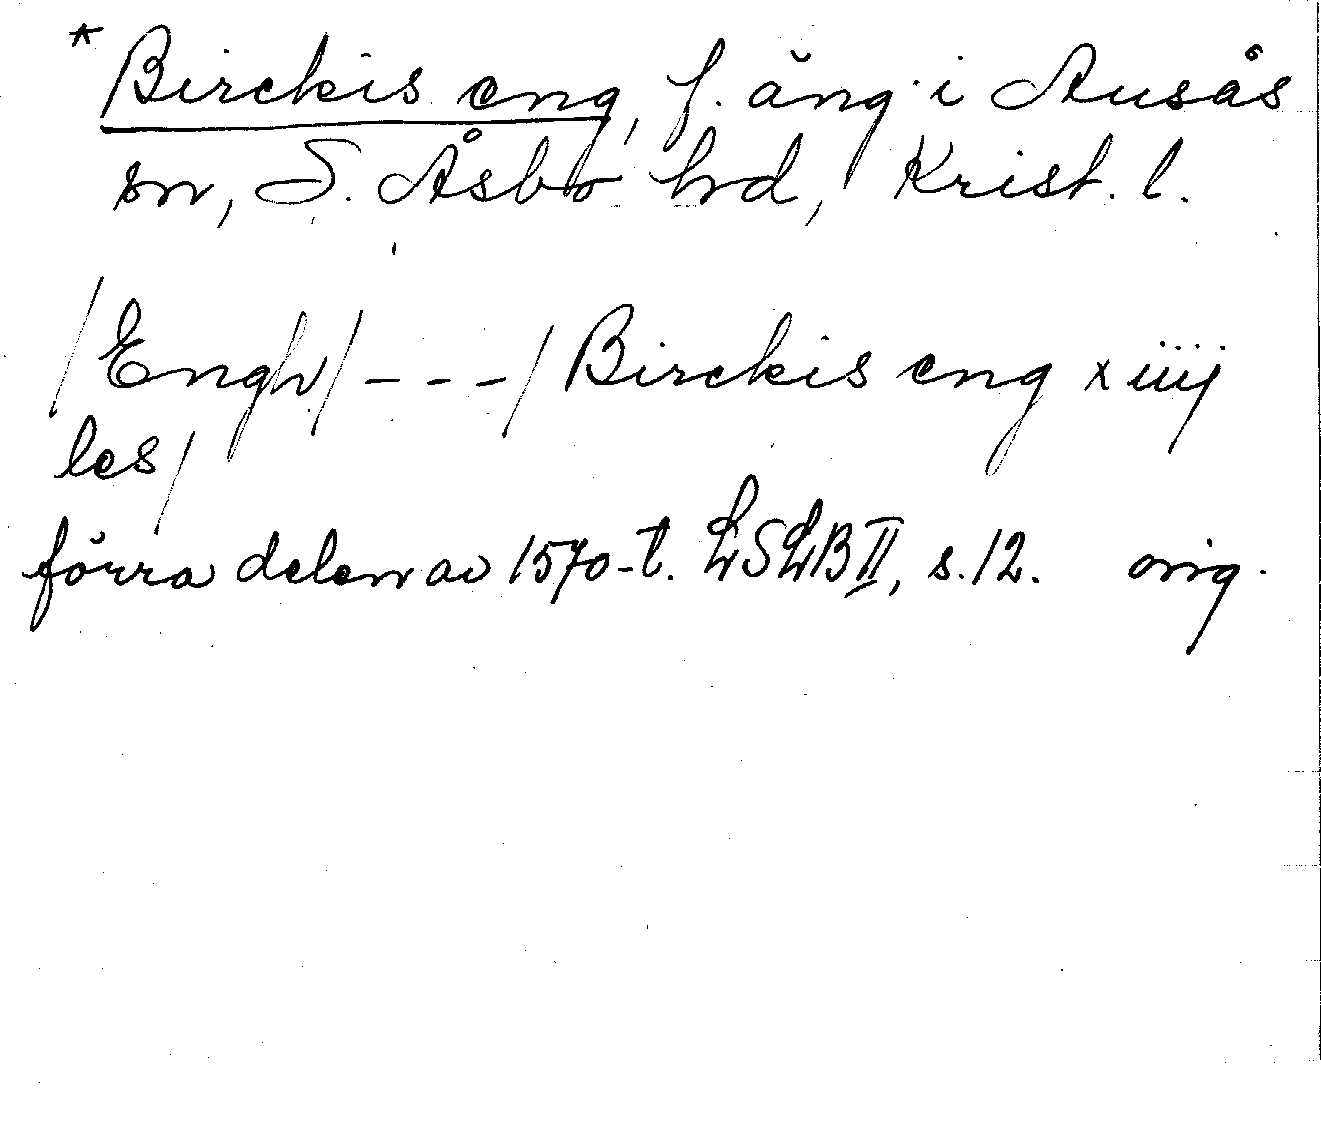 * Birckis eng, f. äng i Ausås
sn, S. Åsbo hd, Krist. l.
/Engh/ - - - / Birckis eng xiiij
les/
förra delen av 1570-t. LSLB II, s. 12. orig.